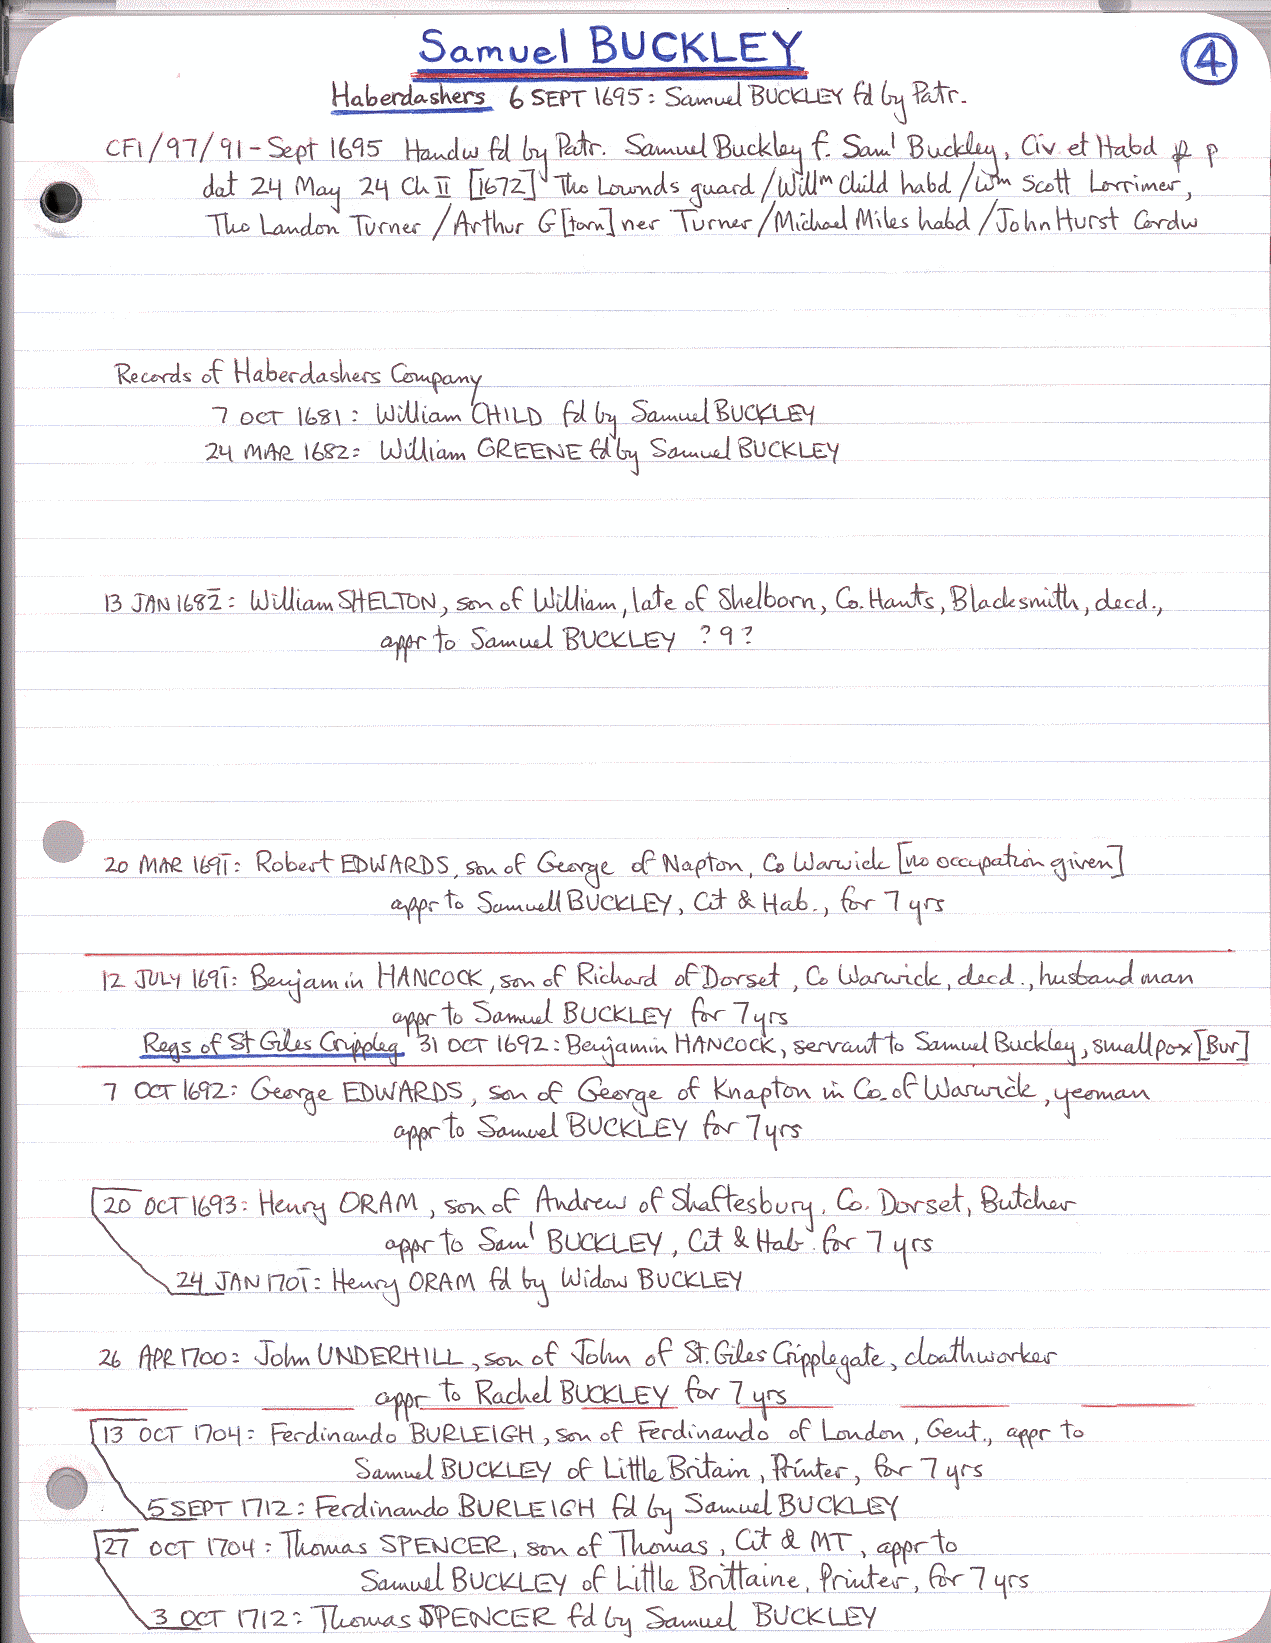 Samuel BUCKLEY
4
Haberdashers 6 SEPT 1695: Samuel BUCKLEY fd by Patr.
CF1/97/91 - Sept 1695 Handw fd by Patr. Samuel Buckley f. Saml Buckley, Civ et Habd p p
dat 24 May 24 Ch II [1672] Tho Lownds guard/Willm Child habd/Wm Scott Lorrimer,
Tho Landon Turner/Arthur G[torn]ner Turner/Michael Miles habd/John Hurst Cordw
Records of Haberdashers Company
7 OCT 1681: William CHILD fd by Samuel BUCKLEY
24 MAR 1682: William GREENE fd by Samuel BUCKLEY
13 JAN 1682: William SHELTON, son of William, late of Shelborn, Co. Hants, Blacksmith, decd.,
appr to Samuel BUCKLEY ?9?
20 MAR 1691: Robert EDWARDS, son of George of Napton, Co Warwick [no occupation given]
appr to Samuell BUCKLEY, Cit & Hab., for 7 yrs
12 JULY 1691: Benjamin HANCOCK, son of Richard of Dorset, Co Warwick, decd., husbandman
appr to Samuel BUCKLEY for 7 yrs
Regs of St Giles Crippleg 31 OCT 1692: Benjamin HANCOCK, servant to Samuel Buckley, smallpox [Bur]
7 OCT 1692: George EDWARDS, son of George of Knapton in Co. of Warwick, yeoman
appr to Samuel BUCKLEY for 7 yrs
20 OCT 1693: Henry ORAM, son of Andrew of Shaftesbury, Co. Dorset, Butcher
appr to Saml BUCKLEY, Cit & Hab for 7 yrs
24 JAN 1701: Henry ORAM fd by Widow BUCKLEY
26 APR 1700: John UNDERHILL, son of John of St. Giles Cripplegate, cloathworker
appr to Rachel BUCKLEY for 7 yrs
13 OCT 1704: Ferdinando BURLEIGH, son of Ferdinando of London, Gent., appr to
Samuel BUCKLEY of Little Britain, Printer, for 7 yrs
5 SEPT 1712: Ferdinando BURLEIGH fd by Samuel BUCKLEY
27 OCT 1704: Thomas SPENCER, son of Thomas, Cit & MT, appr to
Samuel BUCKLEY of Little Brittaine, Printer, for 7 yrs
3 OCT 1712: Thomas SPENCER fd by Samuel BUCKLEY